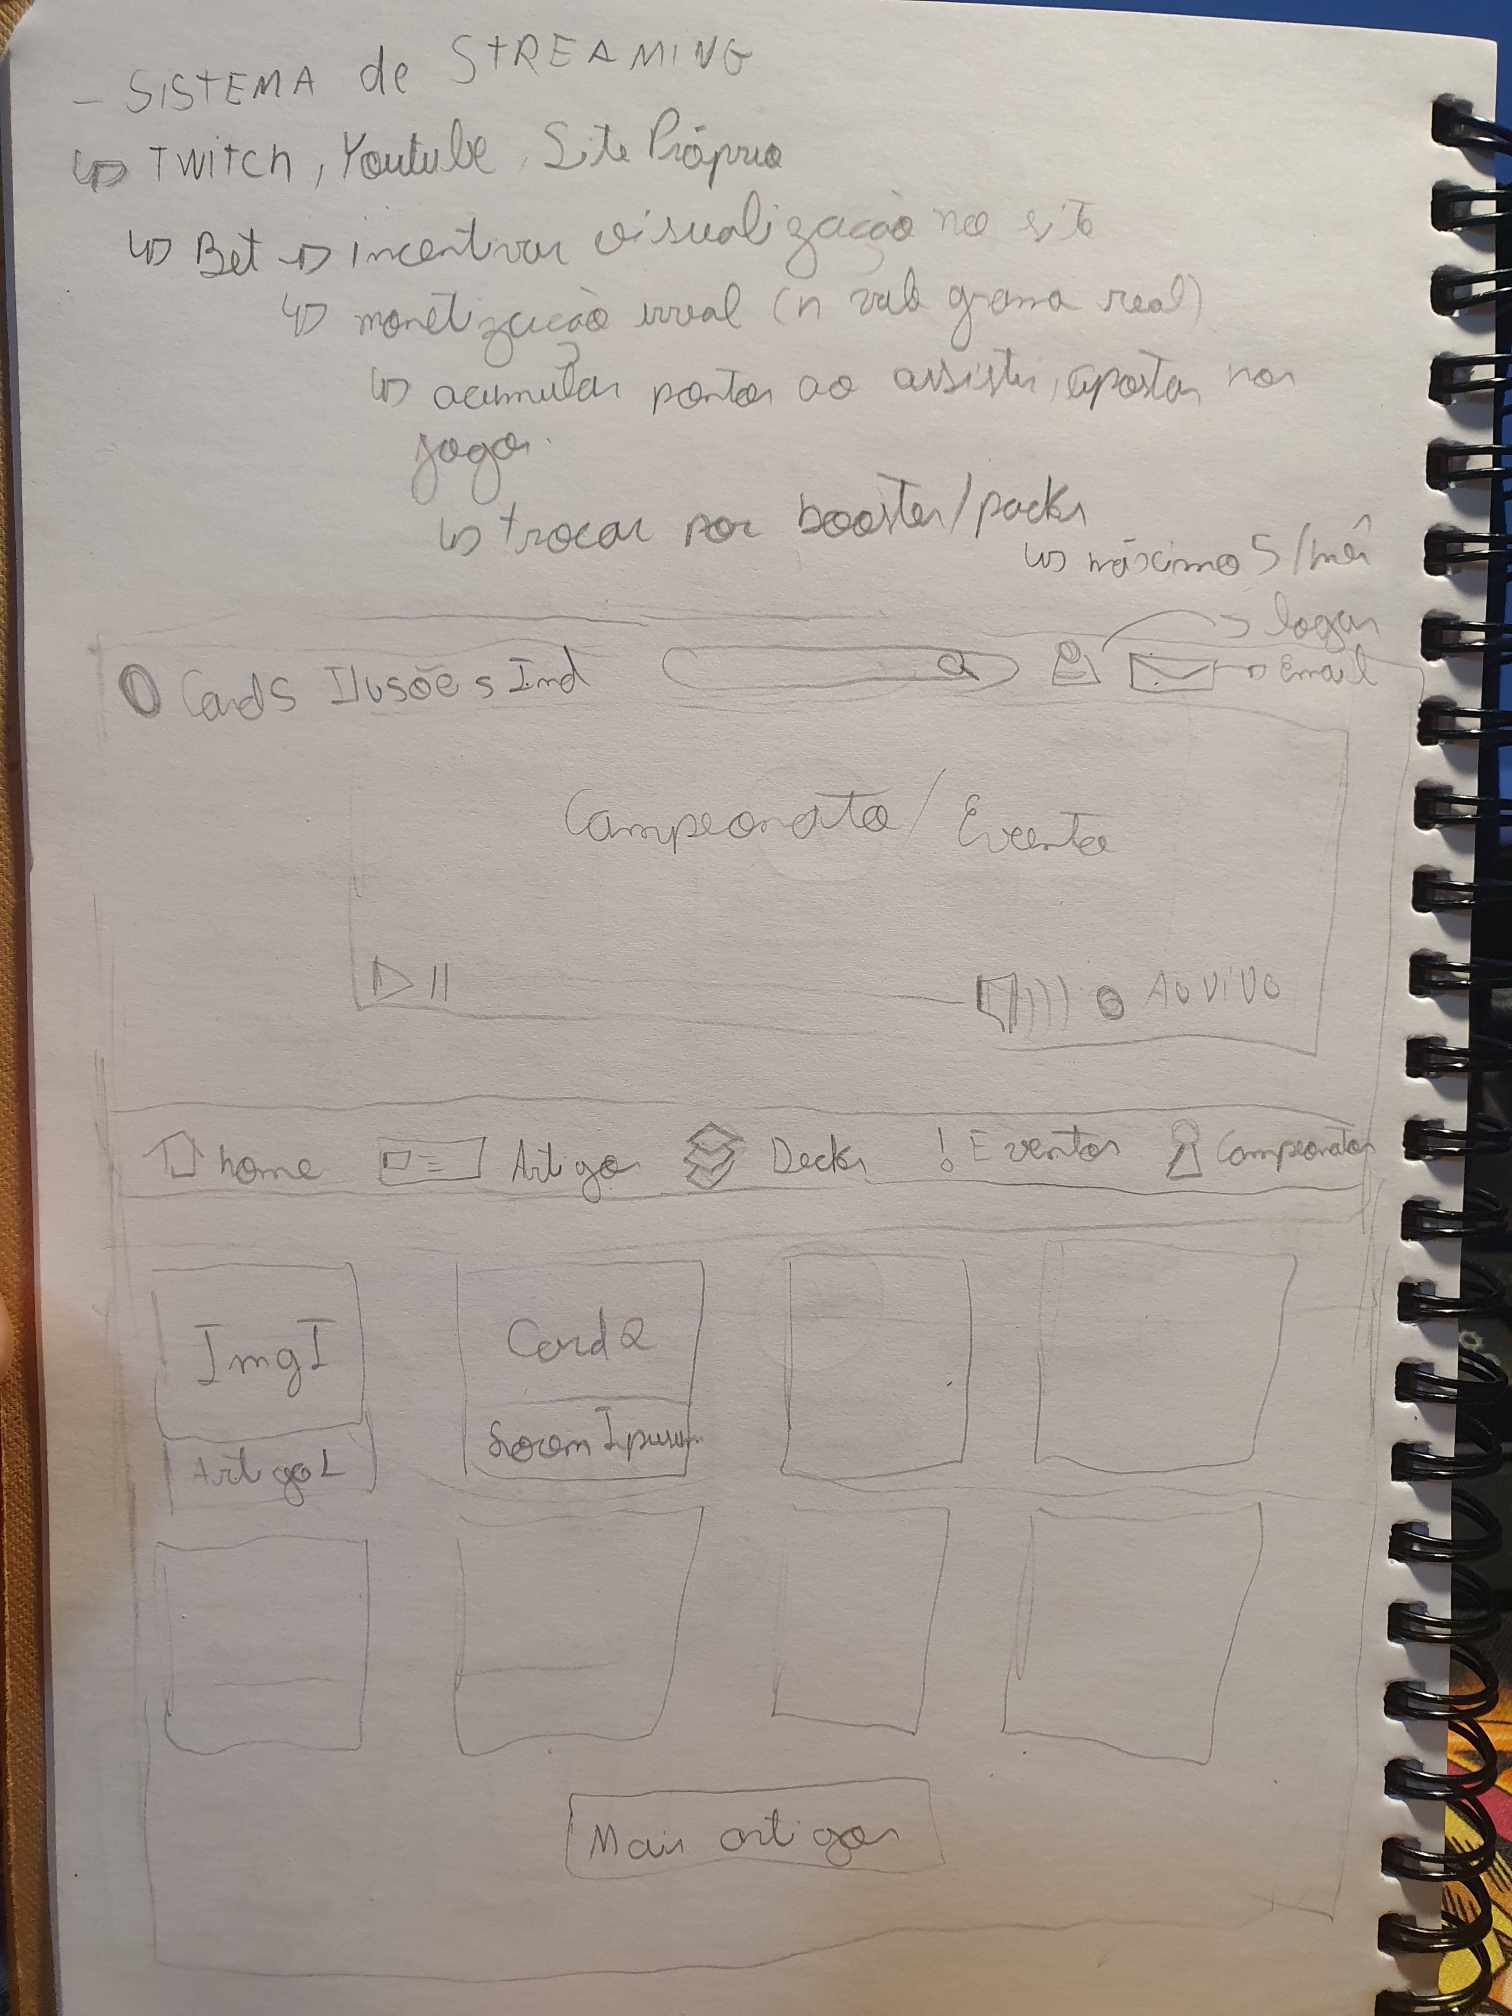 - SISTEMA de STREAMING
↳ Twitch, Youtube, Site Próprio
↳ Bet → incentivar visualização no site
↳ monetização irreal (n vale grana real)
↳ acumular pontos ao assistir, apostar nos
jogos.
↳ trocar por booster/packs
↳ máximo 5/mês
Cards Ilusões Ind
logar
Email
Campeonato/Evento
Ao Vivo
home Artigos Decks ! Eventos Campeonatos
Img1 Card 2
Artigo 1 Lorem Ipsum
Mais artigos